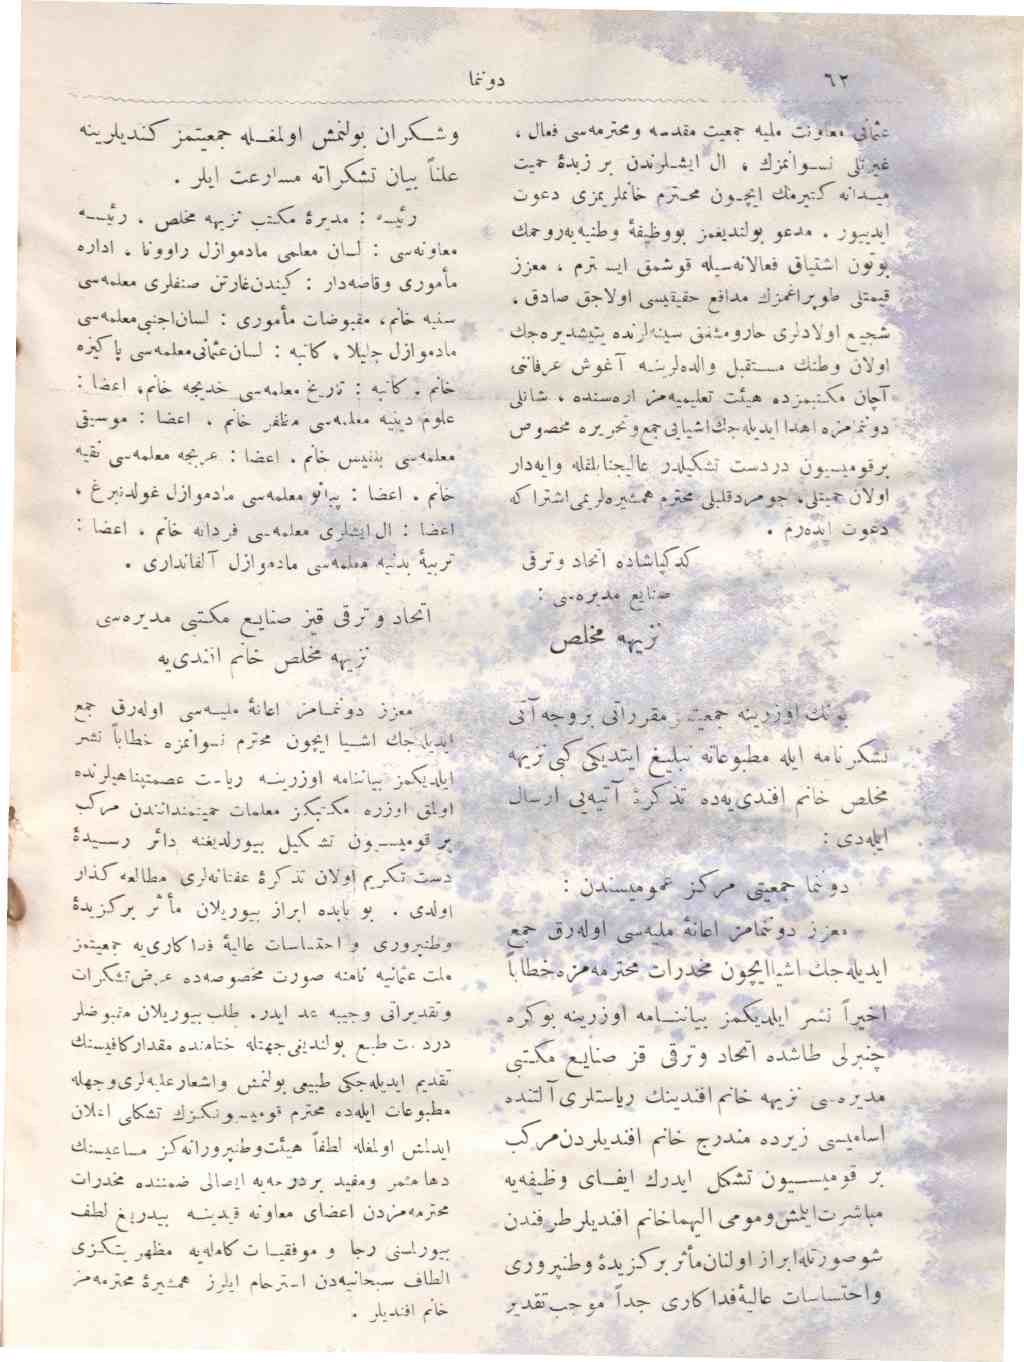 ٦٢
دوننما
عثمانلی معاونت ملیه جمعیت مقدسه ومحترمه‌سی فعال ،
غیرتلی نسوانمزك ، ال ایشلرندن بر زبدۀ حمیت
میدانه کتیرمك ایچون محترم خانملریمزی دعوت
ایدییور . مدعو بولندیغمز بووظیفۀ وطنیه‌یه‌روحمك
بوتون اشتیاق فعالانه‌سیله قوشمق ایسترم ، معزز
قیمتلی طوپراغمزك مدافع حقیقیسی اولاجق صادق ،
شجیع اولادلری حارومشفق سینه‌لرنده یتیشدیره‌جك
اولان وطنك مستقبل والده‌لرینه آغوش عرفاننی
آچان مکتبمزده هیئت تعلیمیه‌مز اره‌سنده ، شانلی
دوننمامزه اهدا ایدیله‌جك‌اشیایی‌جمع‌وتحریره مخصوص
برقومیسیون دردست تشکیلدر عالیجنابلقله وایه‌دار
اولان حمیتلی، جومردقلبلی محترم همشیره‌لریمی‌اشتراکه
دعوت ایده‌رم .
کدکپاشاده اتحاد وترقی
صنایع مدیره‌سی :
نزیهه مخلص
بونك اوزرینه جمعیتمز مقرراتی بروجه آتی
تشکرنامه ایله مطبوعاته تبلیغ ایتدیکی کبی نزیهه
مخلص خانم افندی‌یه‌ده تذکرۀ آتیه‌یی ارسال
ایله‌دی :
دوننما جمعیتی مرکز عمومیسندن :
معزز دوننمامز اعانۀ ملیه‌سی اوله‌رق جمع
ایدیله‌جك اشیاایچون مخدرات محترمه‌مزه‌خطاباً
اخیراً نشر ایلدیکمز بیاننامه اوزرینه بوکره
چنبرلی طاشده اتحاد وترقی قز صنایع مکتبی
مدیره‌سی نزیهه خانم افندینك ریاستلری آلتنده
اسامیسی زیرده مندرج خانم افندیلردن‌مرکب
بر قومیسیون تشکل ایدرك ایفای وظیفه‌یه
مباشرت‌ایلمش‌ومومی الیهماخانم افندیلر طرفندن
شوصورتله‌ابراز اولنان‌مأثر برکزیدۀ وطنپروری
واحتساسات عالیۀفداکاری جداً موجب‌تقدیر
وشکران بولنمش اولمغله جمعیتمز کندیلرینه
علناً بیان تشکراته مسارعت ایلر .
رئیسه : مدیرۀ مکتب نزیهه مخلص . رئیسه
معاونه‌سی : لسان معلمی مادموازل راوونا ، اداره
مأموری وقاصه‌دار : کیندن‌غارتن صنفلری معلمه‌سی
سنیه خانم، مقبوضات مأموری : لسان‌اجنبی‌معلمه‌سی
مادموازل جلیلا ، کاتبه : لسان‌عثمانی‌معلمه‌سی پاکیزه
خانم . کاتبه : تاریخ معلمه‌سی خدیجه خانم، اعضا :
علوم دینیه معلمه‌سی مظفر خانم . اعضا : موسیقی
معلمه‌سی بلقیس خانم . اعضا : عربجه معلمه‌سی نقیه
خانم . اعضا : پیانو معلمه‌سی مادموازل غولدنبرغ ،
اعضا : ال ایشلری معلمه‌سی فردانه خانم . اعضا :
تربیۀ بدنیه معلمه‌سی مادموازل آلفانداری .
اتحاد و ترقی قیز صنایع مکتبی مدیره‌سی
نزیهه مخلص خانم افندی‌یه
معزز دوننمامز اعانۀ ملیه‌سی اوله‌رق جمع
ایدیله‌جك اشیا ایچون محترم نسوانمزه خطاباً نشر
ایلدیکمز بیاننامه اوزرینه ریاست عصمتپناهیلرنده
اولمق اوزره مکتبکز معلمات حمیتمنداندن مرکب
بر قومیسیون تشکیل بیورلدیغنه دائر رسیدۀ
دست تکریم اولان تذکرۀ عفتانه‌لری مطالعه کذار
اولدی . بو بابده ابراز بیوریلان مأثر برکزیدۀ
وطنپروری و احتساسات عالیۀ فداکاری‌یه جمعیتمز
ملت عثمانیه نامنه صورت مخصوصه‌ده عرض‌تشکرات
وتقدیراتی وجیبه عد ایدر. طلب‌بیوریلان مقبوضلر
دردست طبع بولندیغی‌جهتله ختامنده مقدارکافیسنك
تقدیم ایدیله‌جکی طبیعی بولنمش واشعارعلیه‌لری‌وجهله
مطبوعات ایله‌ده محترم قومیسیونکزك تشکلی اعلان
ایدلمش اولمغله لطفاً هیئت‌وطنپرورانه‌کز مساعیسنك
دها مثمر ومفید بردرجه‌یه ایصالی ضمننده مخدرات
محترمه‌مزدن اعضای معاونه قیدینه بیدریغ لطف
بیورلسنی رجا و موفقیات کامله‌یه مظهریتکزی
الطاف سبحانیه‌دن استرحام ایلرز همشیرۀ محترمه‌مز
خانم افندیلر .